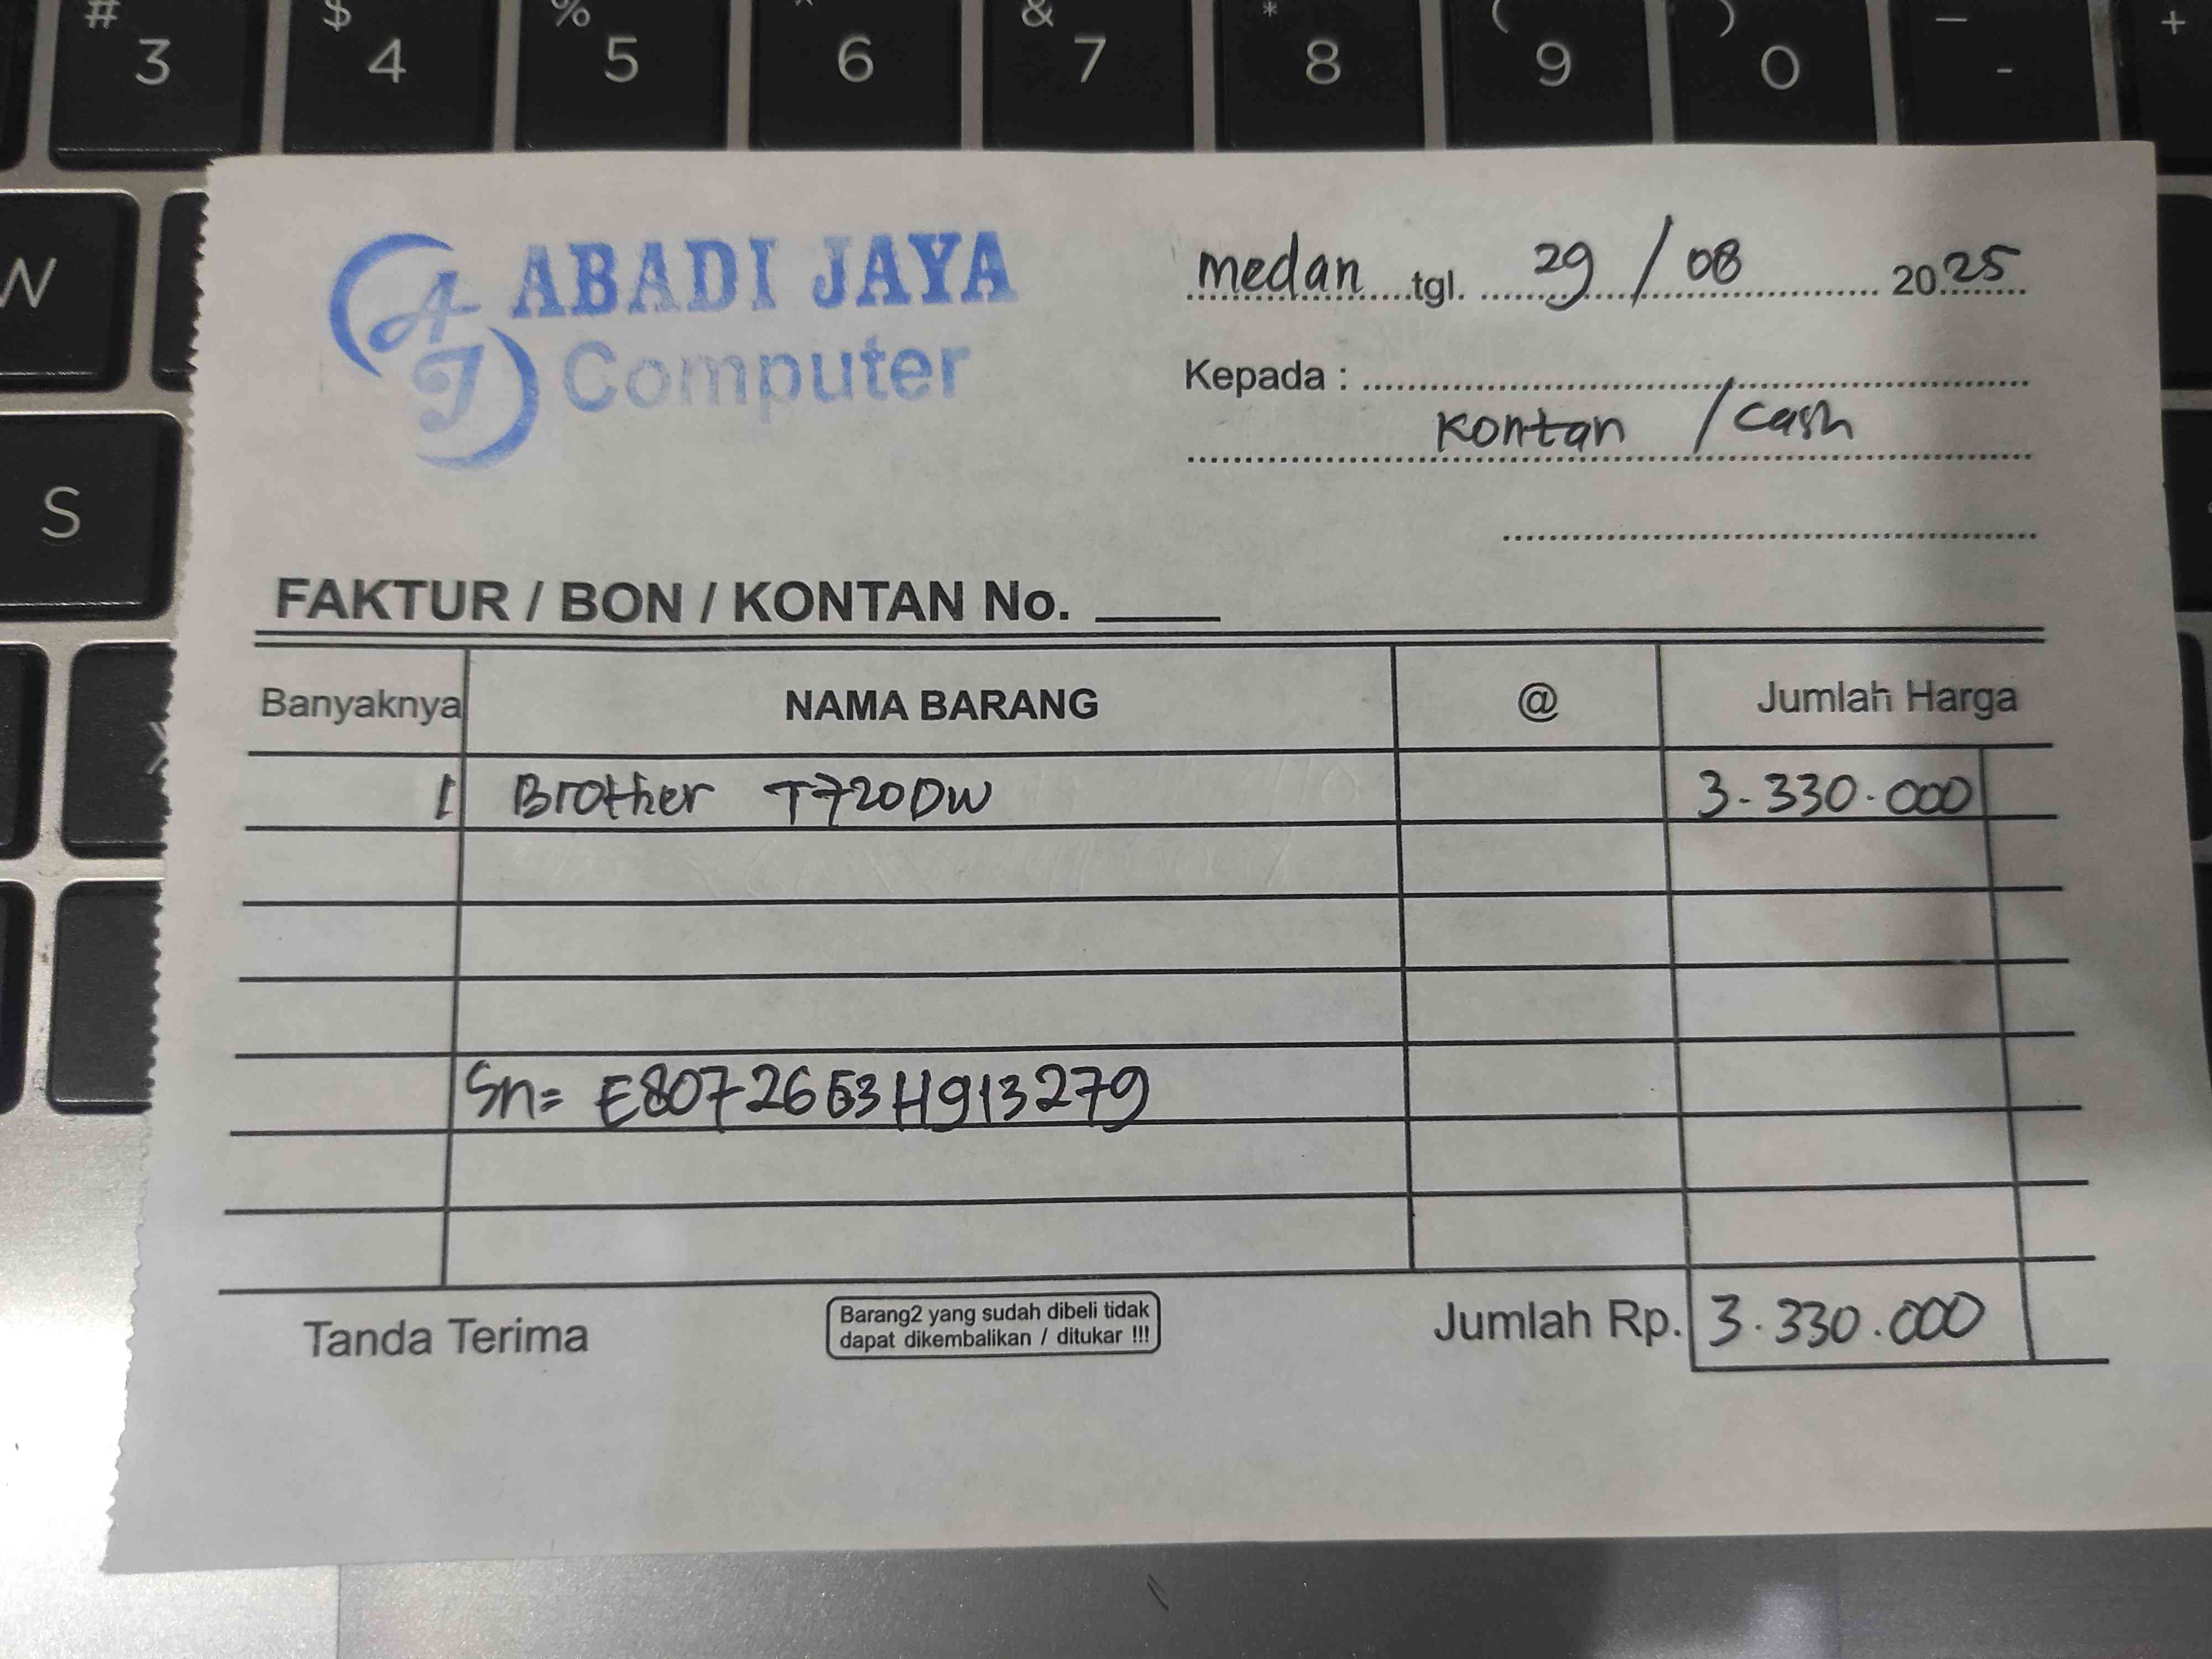 # $ % ^ & * ( ) — +
3 4 5 6 7 8 9 0 -
W
S
AJ
ABADI JAYA
Computer
medan tgl. 29 / 08 2025
Kepada :
Kontan / Cash
FAKTUR / BON / KONTAN No.
Banyaknya NAMA BARANG @ Jumlah Harga
1 Brother T720DW 3.330.000
Sn= E80726G3H913279
Tanda Terima
Barang2 yang sudah dibeli tidak
dapat dikembalikan / ditukar !!!
Jumlah Rp. 3.330.000